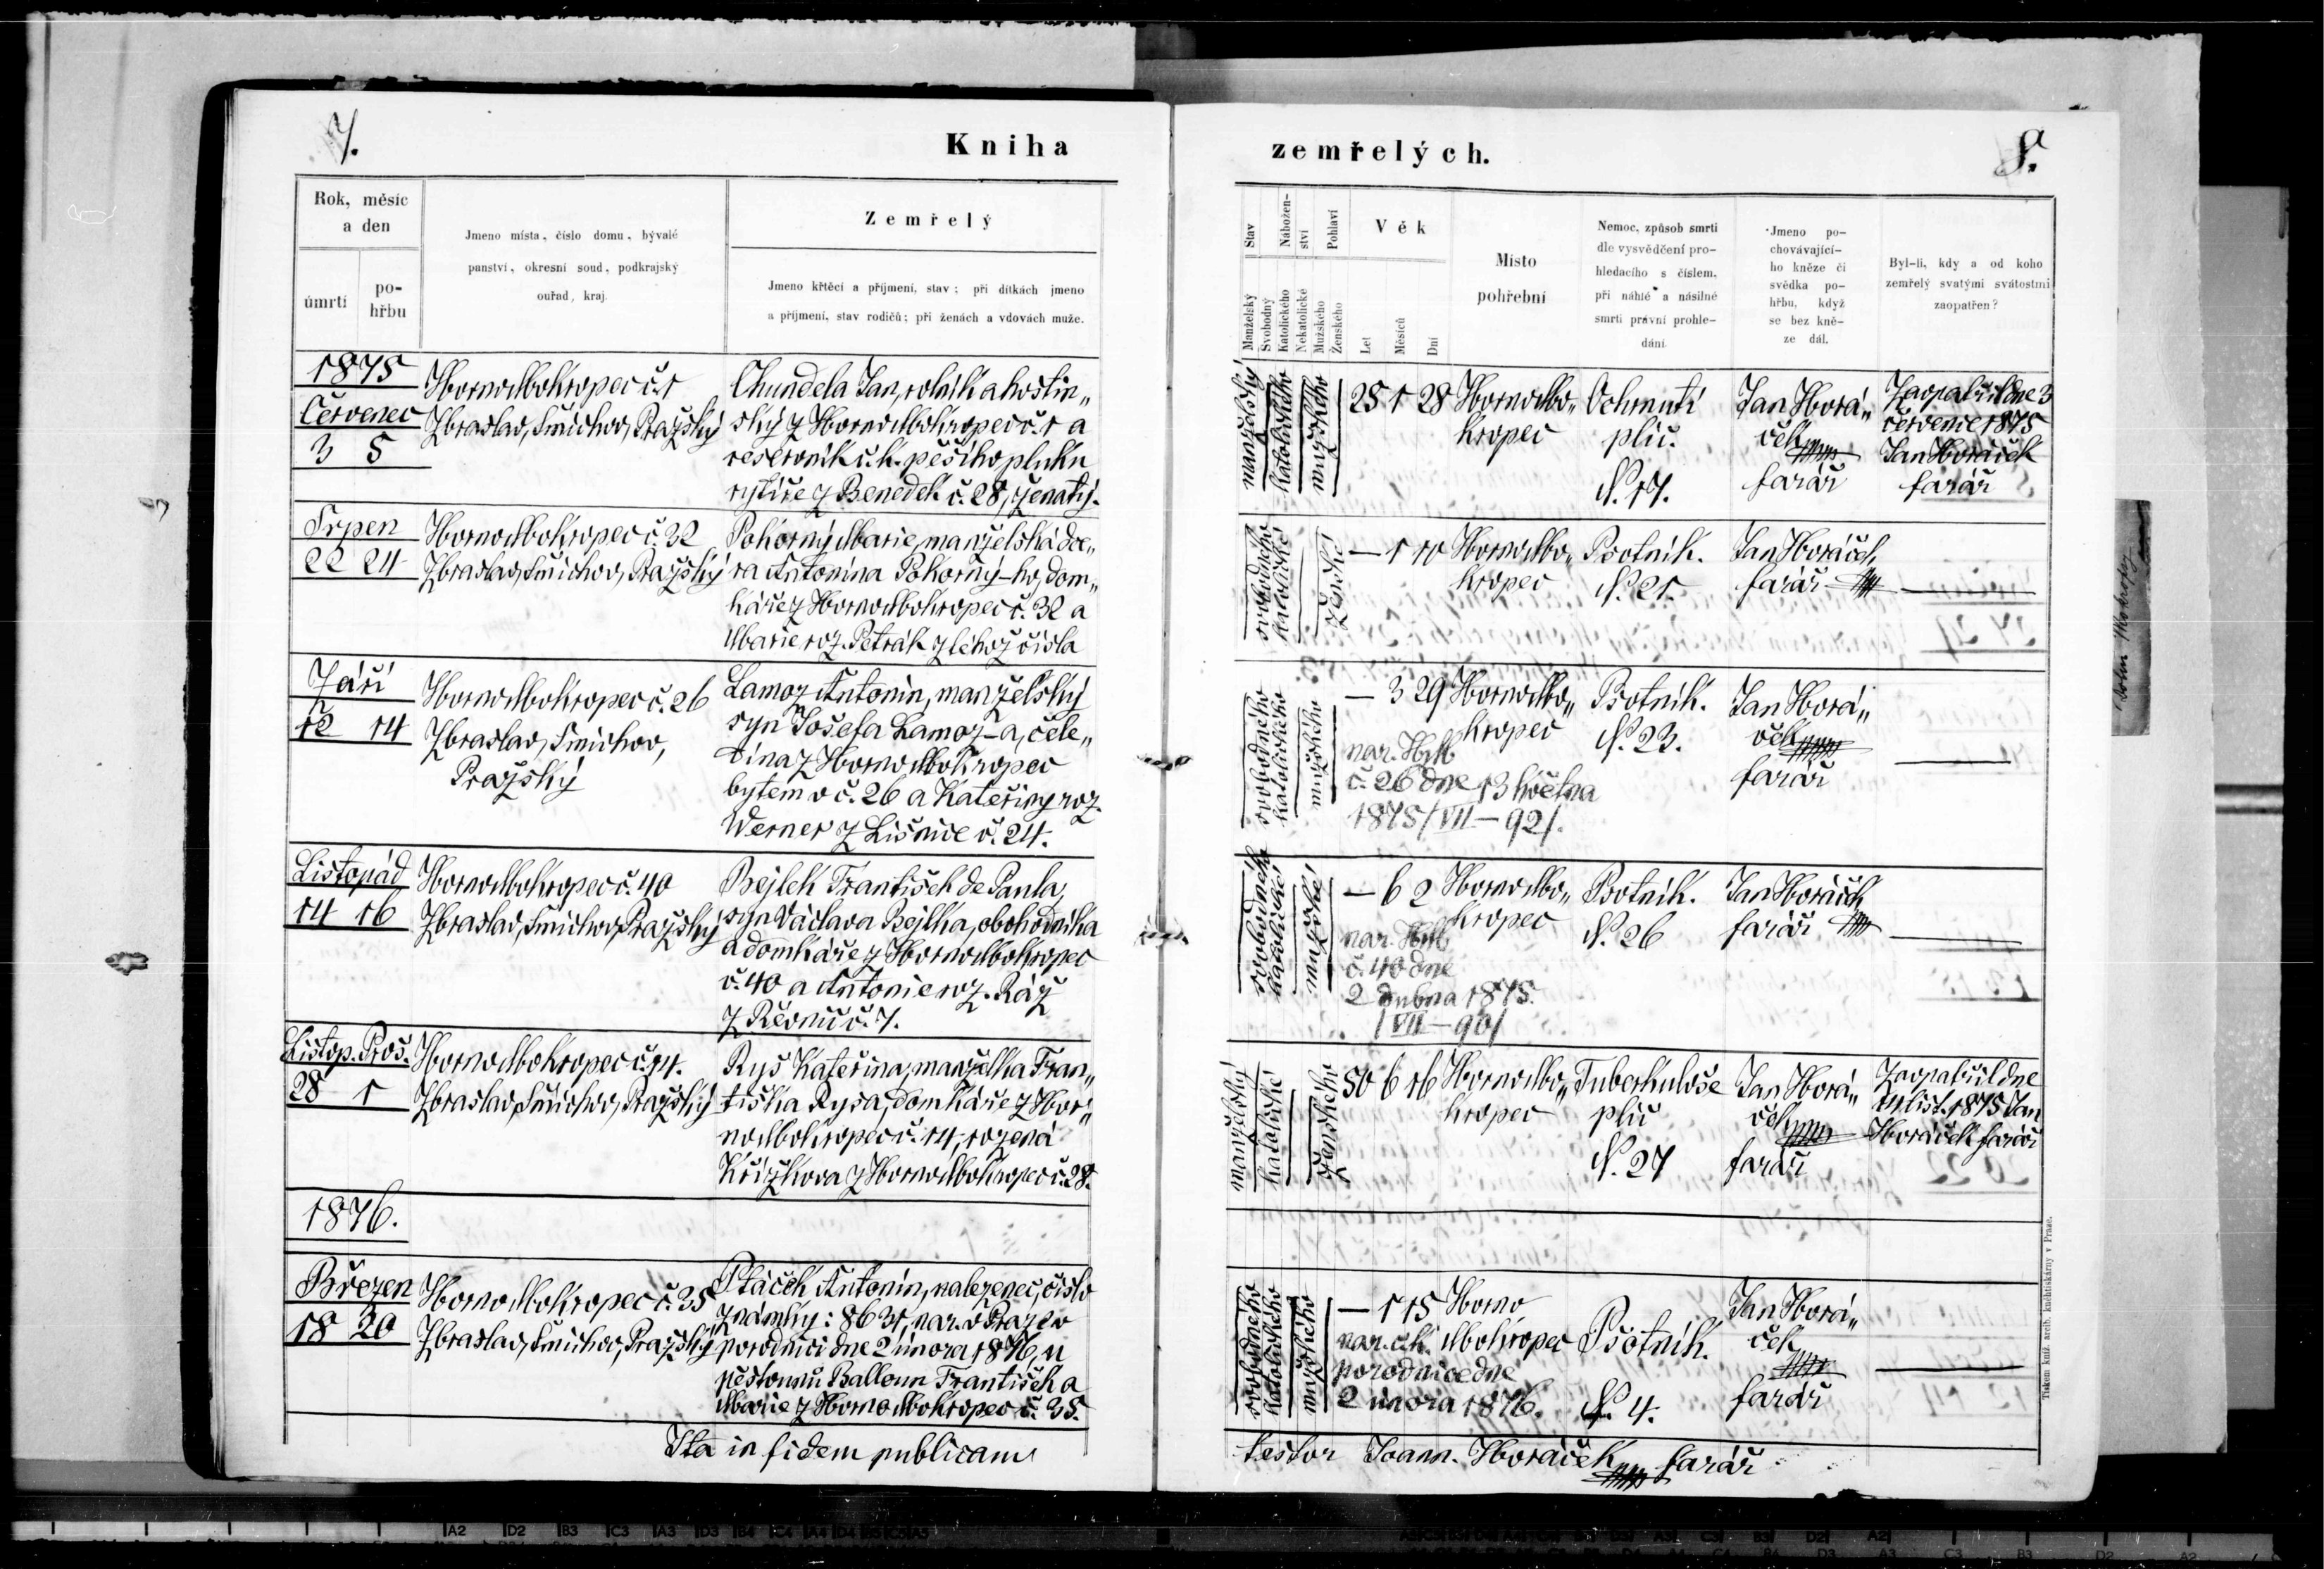 7.
Kniha
Rok, měsíc
a den
úmrtí
po-
hřbu
Jmeno místa, číslo domu, bývalé
panství, okresní soud, podkrajský
ouřad, kraj.
Zemřelý
Jmeno křtěcí a příjmení, stav; při dítkách jmeno
a příjmení, stav rodičů; při ženách a vdovách muže.
1875
Červenec
3 5
Horno Mokropec č. 1
Zbraslav, Smíchov, Pražský
Chundela Jan, rolník a hostin„
ský z Horno Mokropec č. 1 a
reservník c. k. pěšího pluku
rytíře z Benedek č. 28, ženatý.
Srpen
22 24
Horno Mokropec č. 32
Zbraslav, Smíchov, Pražský
Pokorný Marie, manželská dce„
ra Antonína Pokorný-ho, dom„
káře z Horno Mokropec č. 32 a
Marie roz. Petrák z téhož čísla
Září
12 14
Horno Mokropec č. 26
Zbraslav, Smíchov,
Pražský
Lamoz Antonín, manželský
syn Josefa Lamoz-a, čele„
dína z Horno Mokropec
bytem v č. 26 a Kateřiny roz.
Werner z Lišnice č. 24.
Listopád
14 16
Horno Mokropec č. 40
Zbraslav, Smíchov, Pražský
Bejlek František de Paula,
syn Václava Bejlka, obchodníka
a domkáře z Horno Mokropec
č. 40 a Antonie roz. Ráž
z Řevnic č. 7.
Listop. Pros.
28 1
Horno Mokropec č. 14.
Zbraslav, Smíchov, Pražský
Rys Kateřina, manželka Fran„
tiška Rysa, domkáře z Hor„
no Mokropec č. 14, rozená
Křížkova z Horno Mokropec č. 28.
1876.
Březen
18 20
Horno Mokropec č. 35
Zbraslav, Smíchov, Pražský
Ptáček Antonín, nalezenec, číslo
známky: 8631, nar. v Praze v
porodnici dne 2 února 1876, u
pěstounů Balloun František a
Marie z Horno Mokropec č. 35.
Ita in fidem publicam
zemřelých.
8.
Stav
Nábožen-
ství
Pohlaví
Manželský
Svobodný
Katolického
Nekatolické
Mužského
Ženského
Věk
Let
Měsíců
Dní
Místo
pohřební
Nemoc, způsob smrti
dle vysvědčení pro-
hledacího s číslem,
při náhlé a násilné
smrti právní prohle-
dání.
Jmeno po-
chovávající-
ho kněze či
svědka po-
hřbu, když
se bez kně-
ze dál.
Byl-li, kdy a od koho
zemřelý svatými svátostmi
zaopatřen?
manželský
katolického
mužského
25 1 28
Horno Mo„
kropec
Ochrnutí
plic.
N. 17.
Jan Horá„
ček
farář
Zaopatřil dne 3
července 1875
Jan Horáček
farář
svobodného
katolické
ženské
— 1 10
Horno Mo„
kropec
Psotník.
N. 21.
Jan Horáček,
farář
svobodného
katolického
mužského
— 3 29
Horno Mo„
kropec
nar. HM
č. 26 dne 13 května
1875 / VII — 92/.
Psotník.
N. 23.
Jan Horá„
ček
farář
svobodného
katolické
mužské
— 6 2
Horno Mo„
kropec
nar. HM
č. 40 dne
2 dubna 1875.
/ VII — 90/
Psotník.
N. 26
Jan Horáček
farář
manželský
katolické
ženského
50 6 16
Horno Mo„
kropec
Tuberkulose
plic
N. 27
Jan Horá„
ček
farář
Zaopatřil dne
14 list. 1875 Jan
Horáček farář
svobodného
katolického
mužského
— 1 15
Horno
Mokropec
nar. c. k.
porodnice dne
2 února 1876.
Psotník.
N. 4.
Jan Horá„
ček
farář
testor Joann. Horáček farář
Tiskem kníž. arcib. knihtiskárny v Praze.